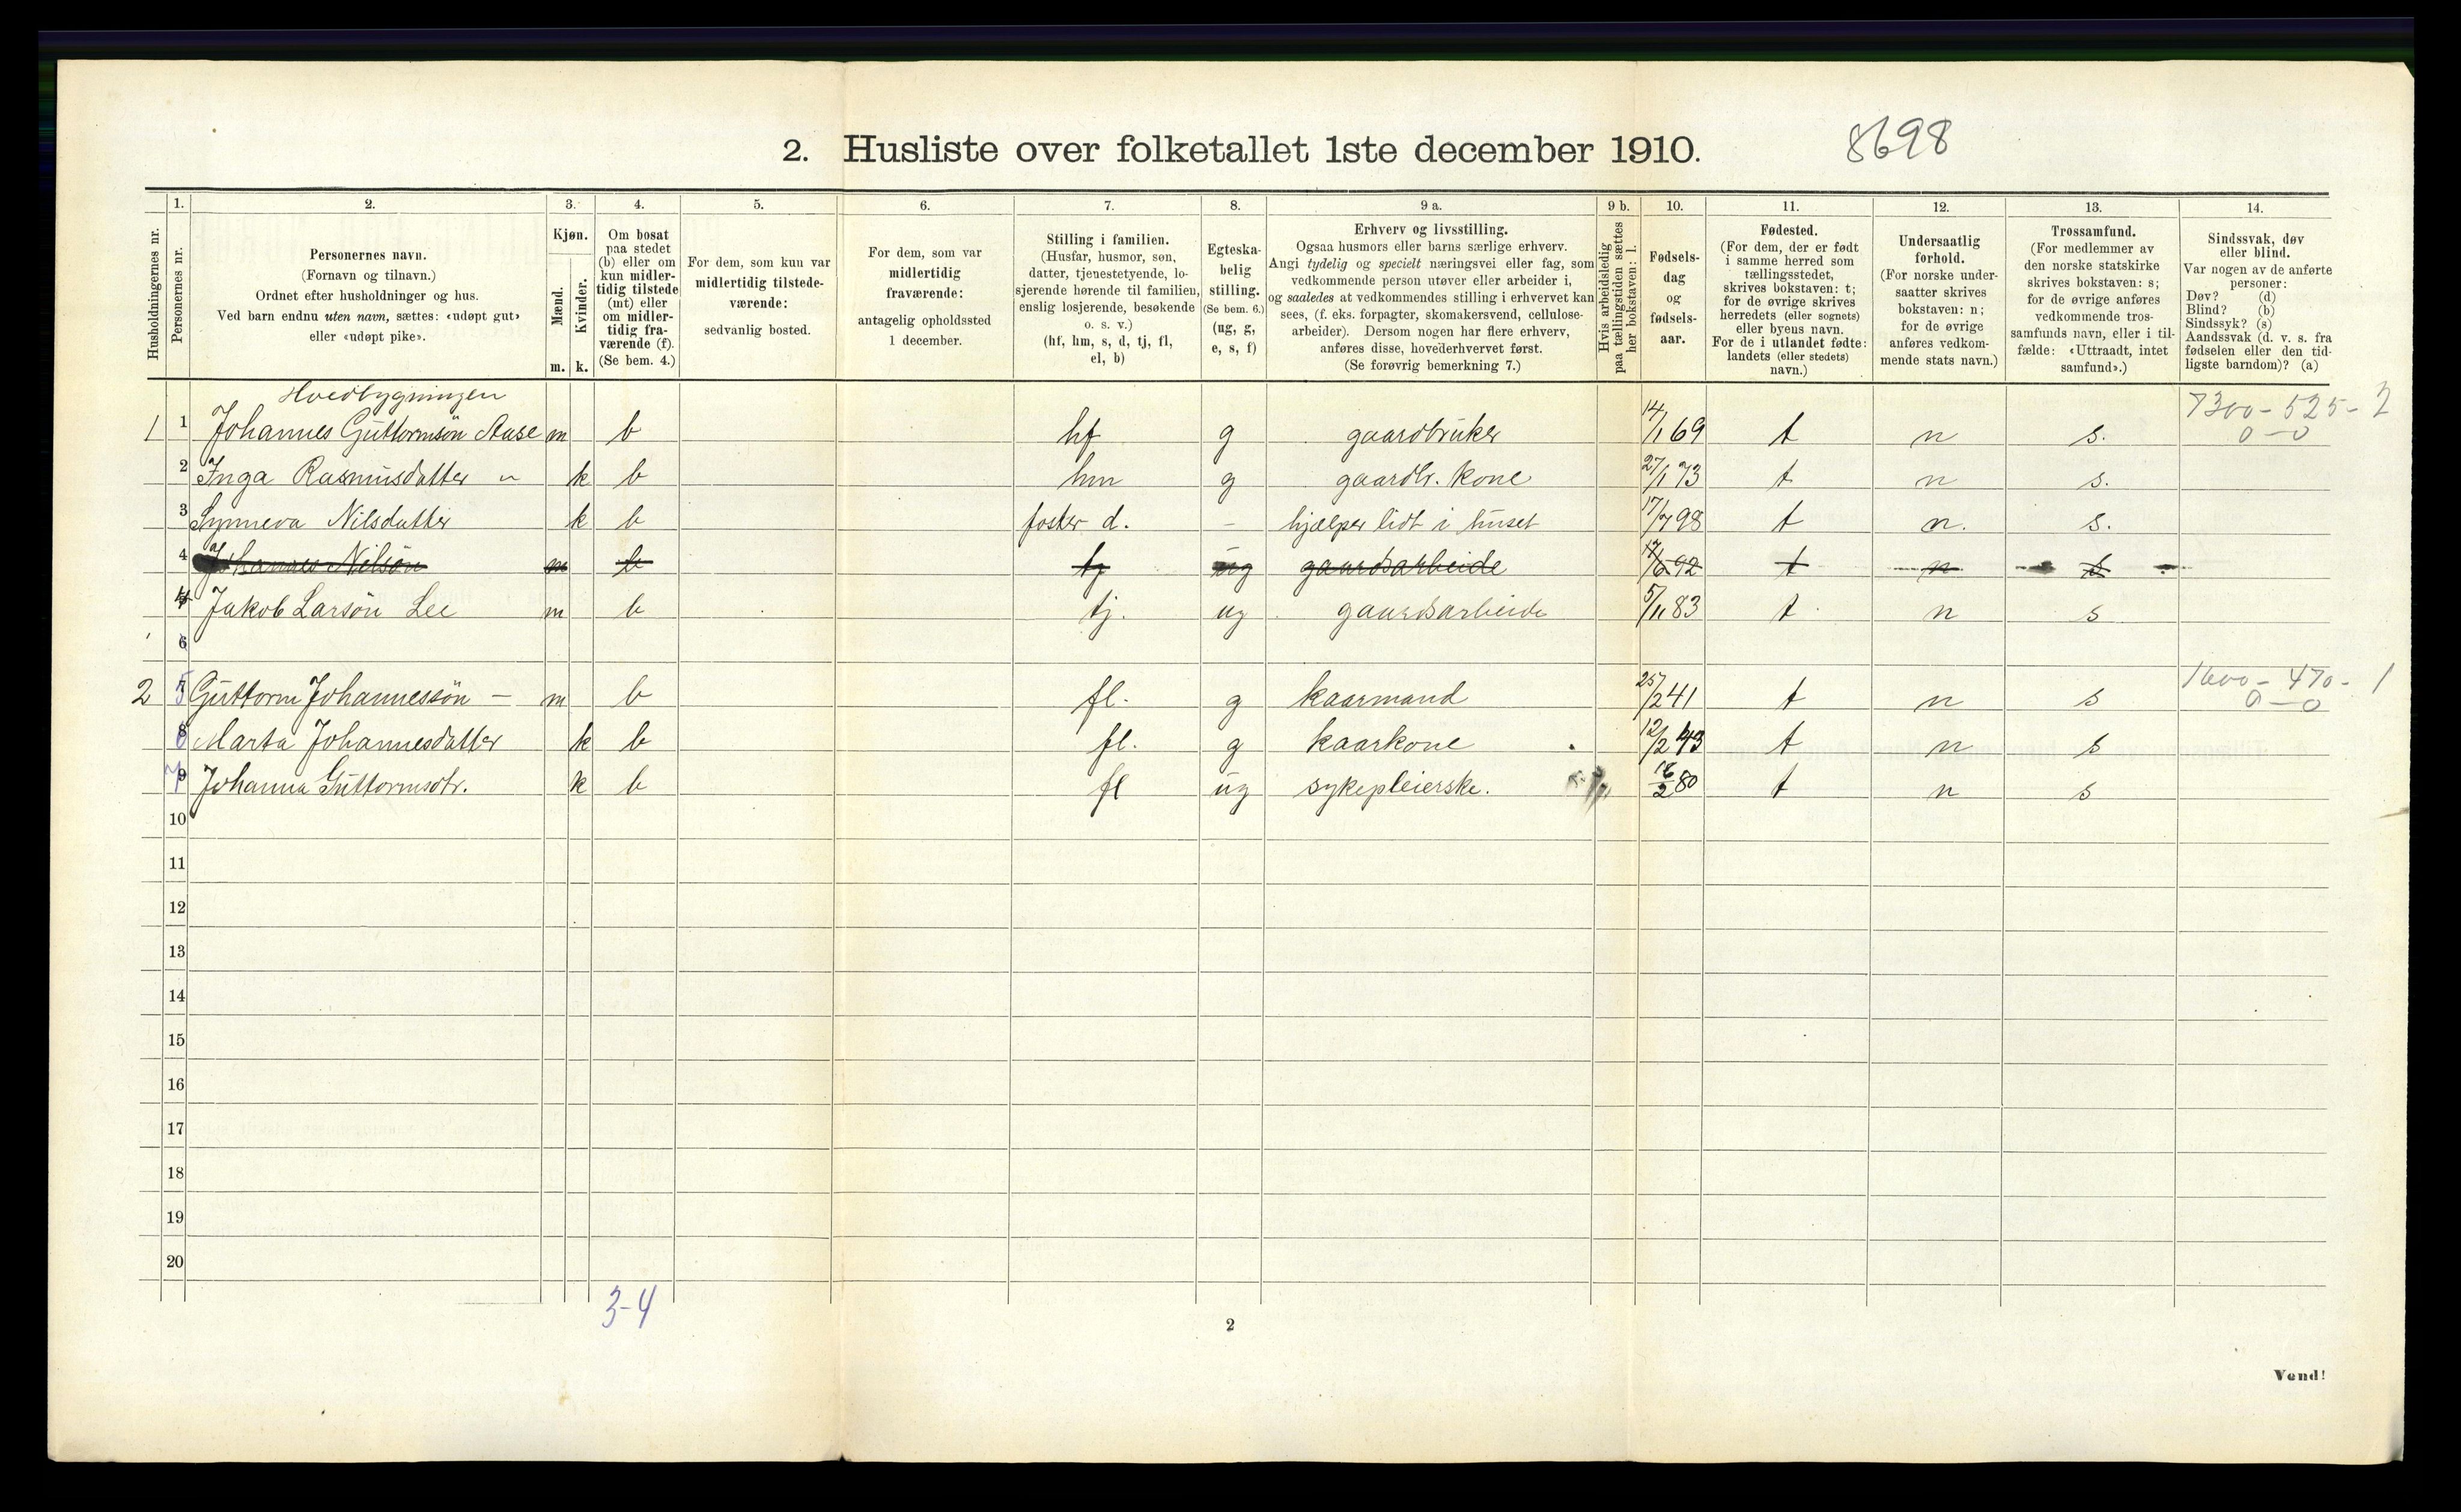 2. Husliste over folketallet 1ste december 1910.
8698
1. 2. 3. 4. 5. 6. 7. 8. 9 a. 9 b. 10. 11. 12. 13. 14.
Husholdningernes nr.
Personernes nr.
Personernes navn.
(Fornavn og tilnavn.)
Ordnet efter husholdninger og hus.
Ved barn endnu uten navn, sættes: «udøpt gut»
eller «udøpt pike».
Kjøn.
Mænd.
Kvinder.
m. k.
Om bosat
paa stedet
(b) eller om
kun midler-
tidig tilstede
(mt) eller
om midler-
tidig fra-
værende (f).
(Se bem. 4.)
For dem, som kun var
midlertidig tilstede-
værende:
sedvanlig bosted.
For dem, som var
midlertidig
fraværende:
antagelig opholdssted
1 december.
Stilling i familien.
(Husfar, husmor, søn,
datter, tjenestetyende, lo-
sjerende hørende til familien,
enslig losjerende, besøkende
o. s. v.)
(hf, hm, s, d, tj, fl,
el, b)
Egteska-
belig
stilling.
(Se bem. 6.)
(ug, g,
e, s, f)
Erhverv og livsstilling.
Ogsaa husmors eller barns særlige erhverv.
Angi tydelig og specielt næringsvei eller fag, som
vedkommende person utøver eller arbeider i,
og saaledes at vedkommendes stilling i erhvervet kan
sees, (f. eks. forpagter, skomakersvend, cellulose-
arbeider). Dersom nogen har flere erhverv,
anføres disse, hovederhvervet først.
(Se forøvrig bemerkning 7.)
Hvis arbeidsledig
paa tællingstiden sættes
her bokstaven: l.
Fødsels-
dag
og
fødsels-
aar.
Fødested.
(For dem, der er født
i samme herred som
tællingsstedet,
skrives bokstaven: t;
for de øvrige skrives
herredets (eller sognets)
eller byens navn.
For de i utlandet fødte:
landets (eller stedets)
navn.)
Undersaatlig
forhold.
(For norske under-
saatter skrives
bokstaven: n;
for de øvrige
anføres vedkom-
mende stats navn.)
Trossamfund.
(For medlemmer av
den norske statskirke
skrives bokstaven: s;
for de øvrige anføres
vedkommende tros-
samfunds navn, eller i til-
fælde: «Uttraadt, intet
samfund».)
Sindssvak, døv
eller blind.
Var nogen av de anførte
personer:
Døv? (d)
Blind? (b)
Sindssyk? (s)
Aandssvak (d. v. s. fra
fødselen eller den tid-
ligste barndom)? (a)
Hovedbygningen
7300 - 525 - 2
1 1 Johannes Guttormsön Aase m b hf g gaardbruker 14/1 69 t n s. 0 - 0
2 Inga Rasmusdatter " k b hm g gaardbr. kone 27/1 73 t n s.
3 Synneva Nilsdatter k b foster d. - hjælper lidt i huset 17/7 98 t n. s.
4 Johannes Nilsön m b tj ug gaardsarbeide 17/6 92 t n s
4 Jakob Larsön Lee m b tj. ug gaardsarbeide 5/11 83 t n s
6
1600 - 470 - 1
2 5 Guttorm Johannessön - m b fl. g kaarmand 25/2 41 t n s 0 - 0
6 Marta Johannesdatter k b fl. g kaarkone 12/2 43 t n s
7 Johanna Guttormsdtr. k b fl ug sykepleierske. 18/2 80 t n s
10
11
12
13
14
15
16
17
18
19
20
3-4
2
Vend!